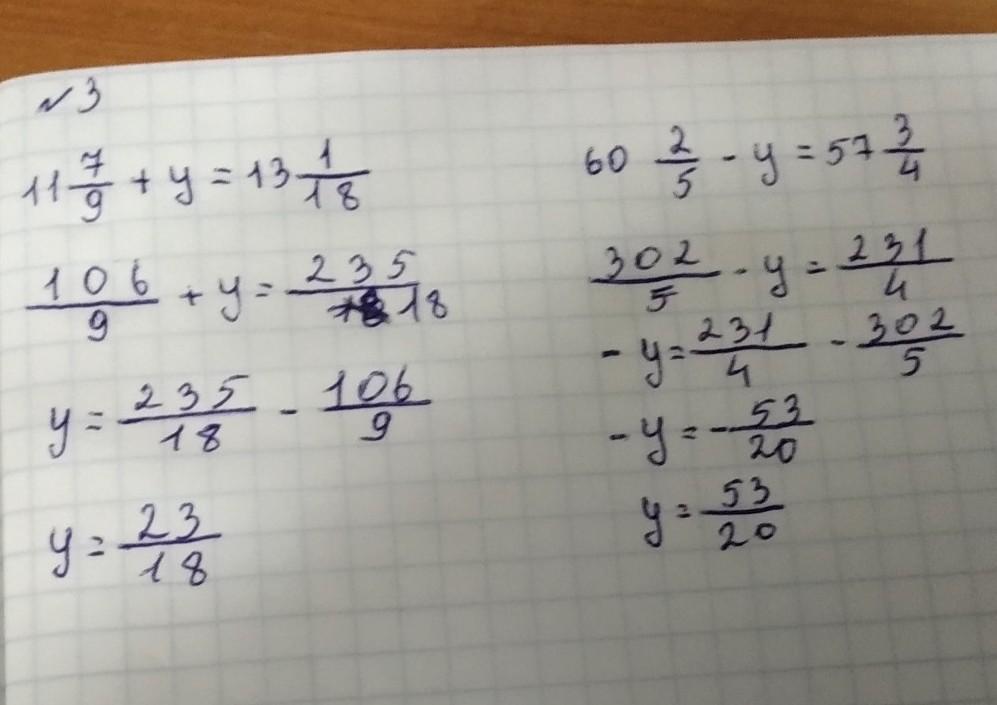 №3
11 7/9 + y = 13 1/18
106/9 + y = 235/18
y = 235/18 - 106/9
y = 23/18
60 2/5 - y = 57 3/4
302/5 - y = 231/4
- y = 231/4 - 302/5
- y = - 53/20
y = 53/20